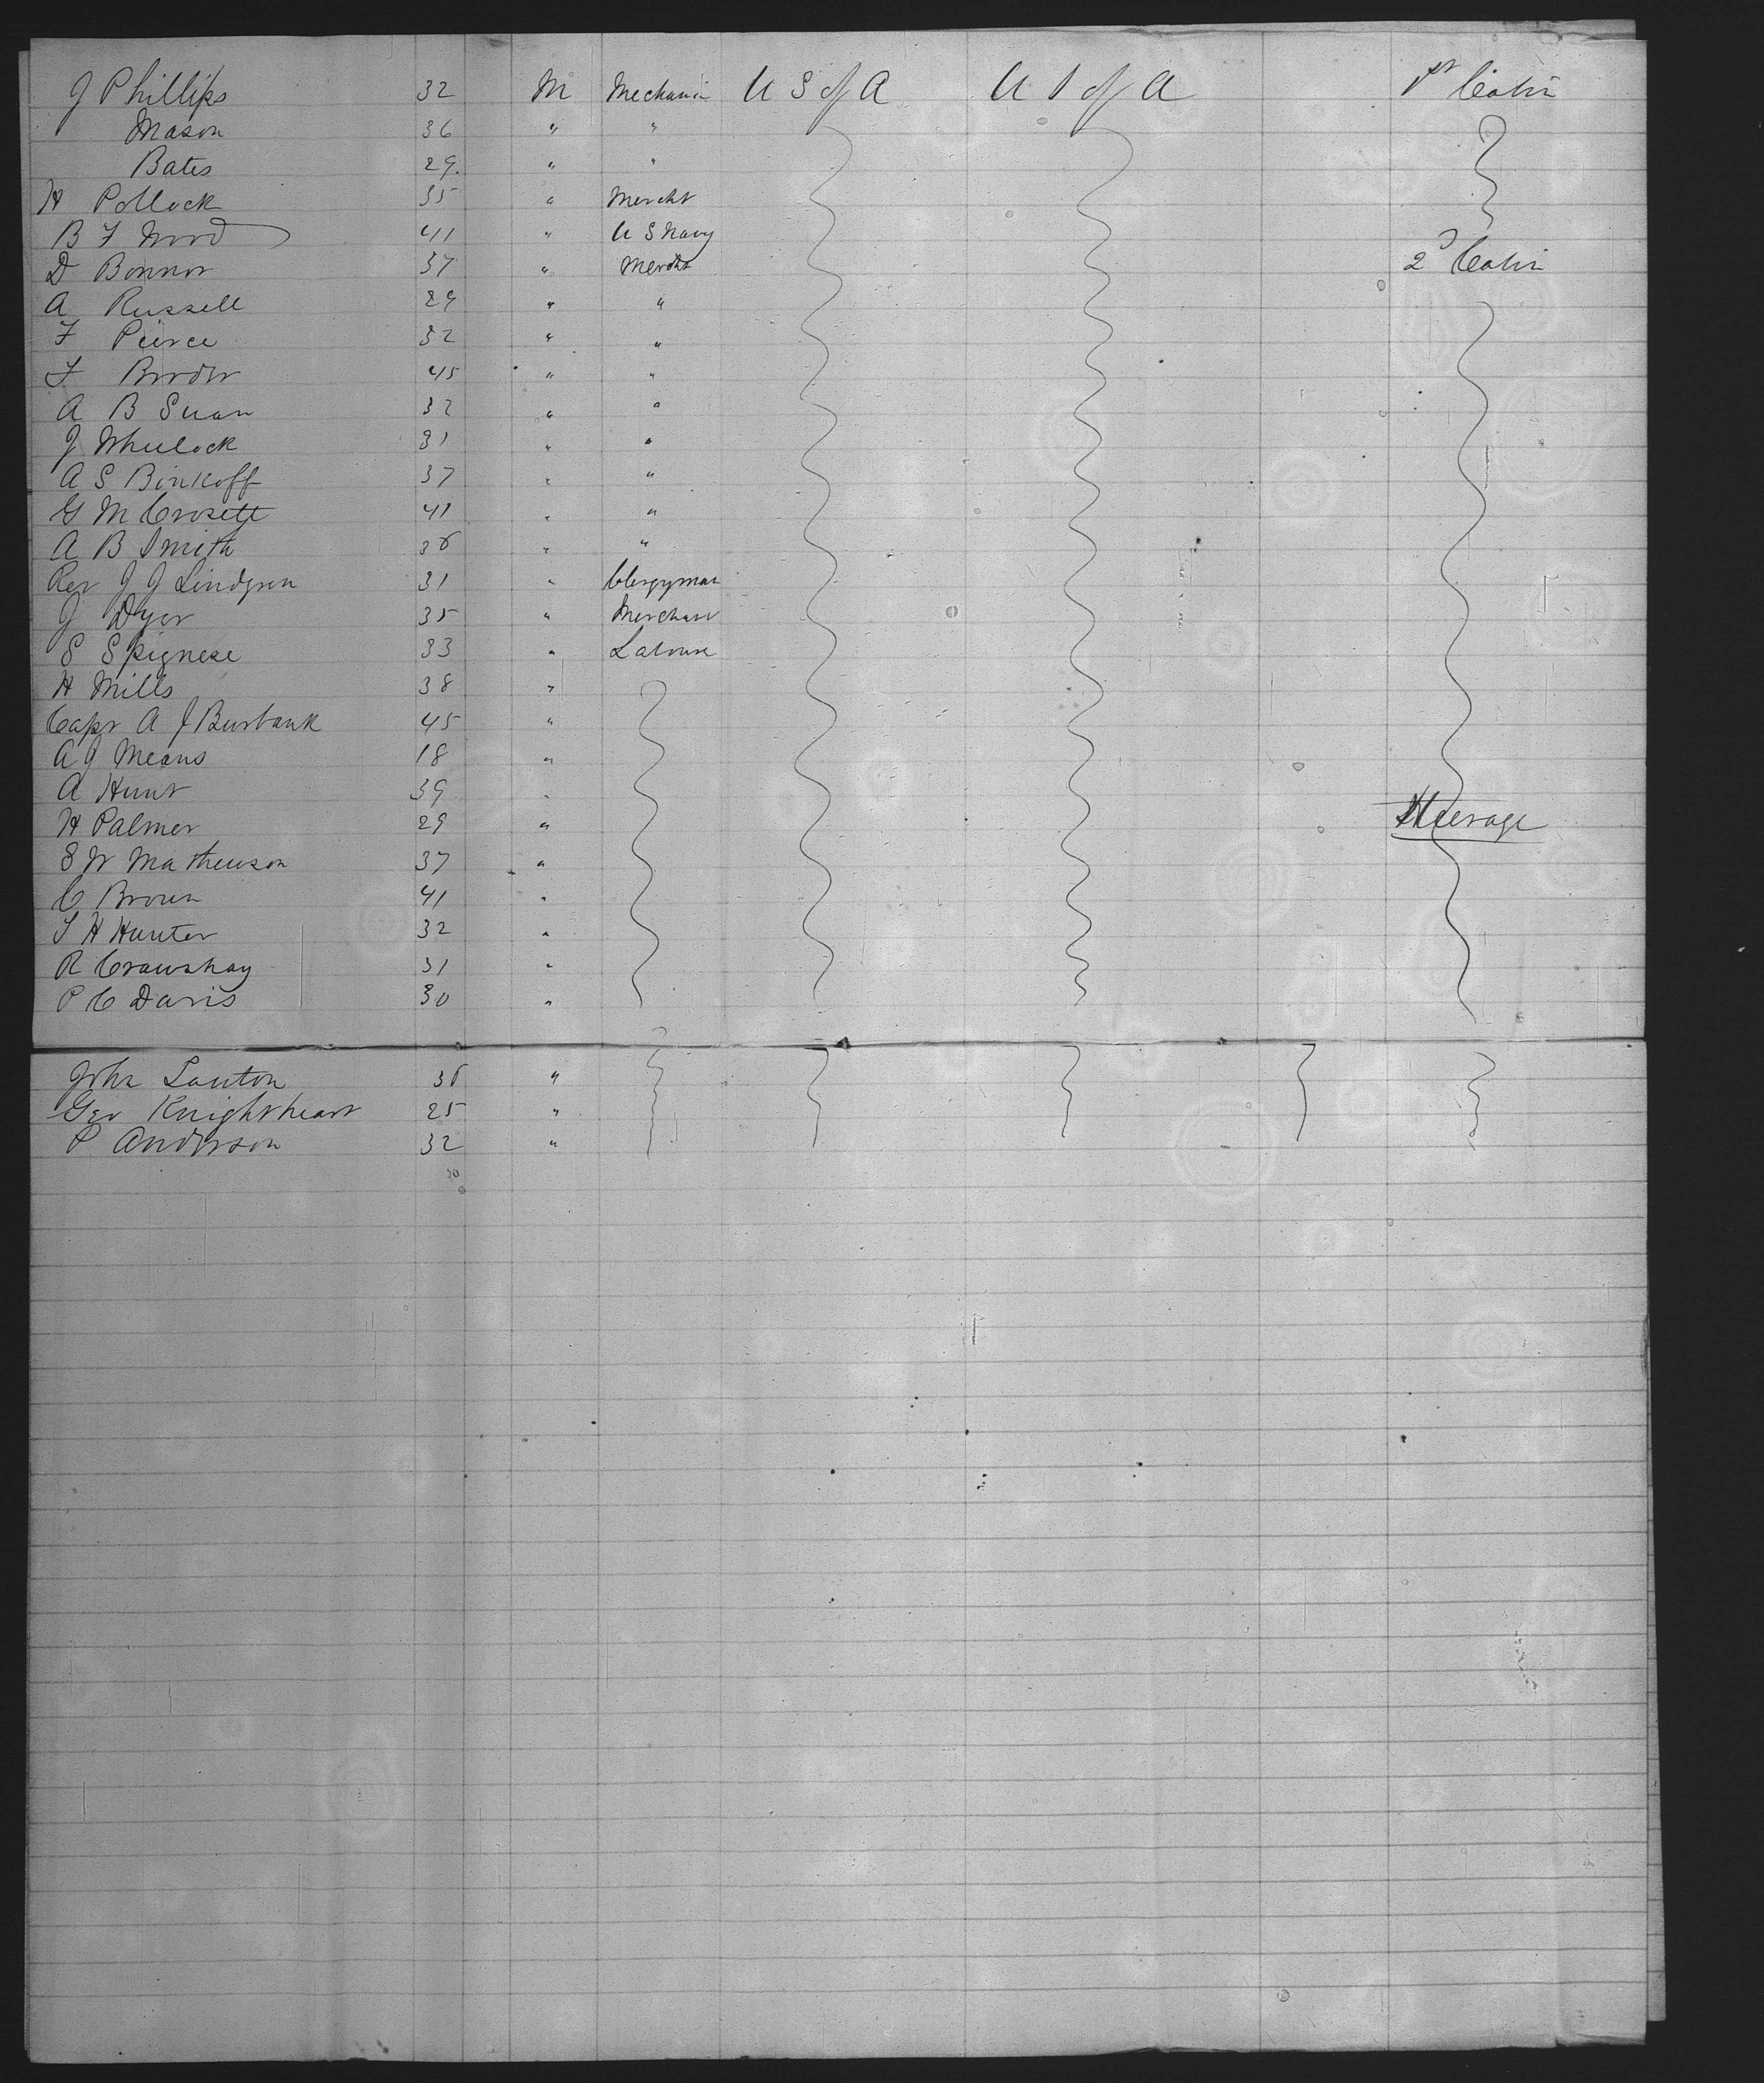 J Phillips 32 M Mechanic U S of A U S of A 1st Cabin
Mason 36 " "
Bates 29. " "
H Pollock 35 " Mercht
B F Wood 41 " U S Navy
D Bonnor 37 " Mercht 2d Cabin
A Russell 29 " "
F Peirce 32 " "
45 " "
A B Swan 32 " "
J Wheelock 31 " "
A S Binkoff 37 " "
G M Crosett 41 " "
A B Smith 36 " "
Rev J J Lindgren 31 " Clergyman
J Dyer 35 " Merchant
S Spignese 33 " Laborer
H Mills 38 "
Capt A J Burbank 45 "
A J Means 18 "
A Hunt 39 "
H Palmer 29 " Steerage
S W Mathewson 37 "
C Brown 41 "
T H Hunter 32 "
R Crawshay 31 "
P C Davis 30 "
John Lawton 36 "
Geo Knightheart 25 "
P Anderson 32 "
30